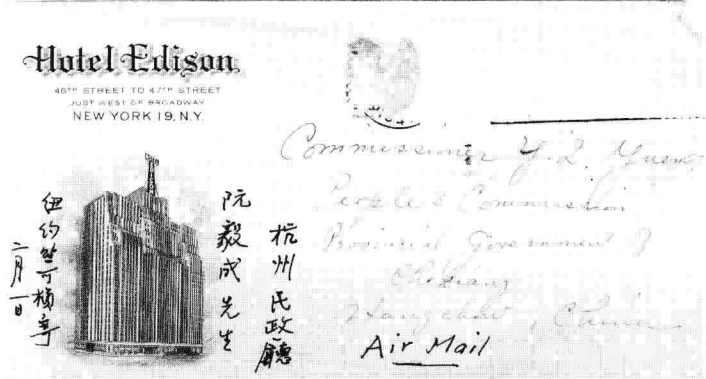 Hotel Edison
46TH STREET TO 47TH STREET
JUST WEST OF BROADWAY
NEW YORK 19, N.Y.
Commissioner Y. Yuen
People's Commission
Provincial Government of
Chekiang
Hangchow, China
Air Mail
杭州民政廳
阮毅成先生
紐約竺可楨寄
二月一日